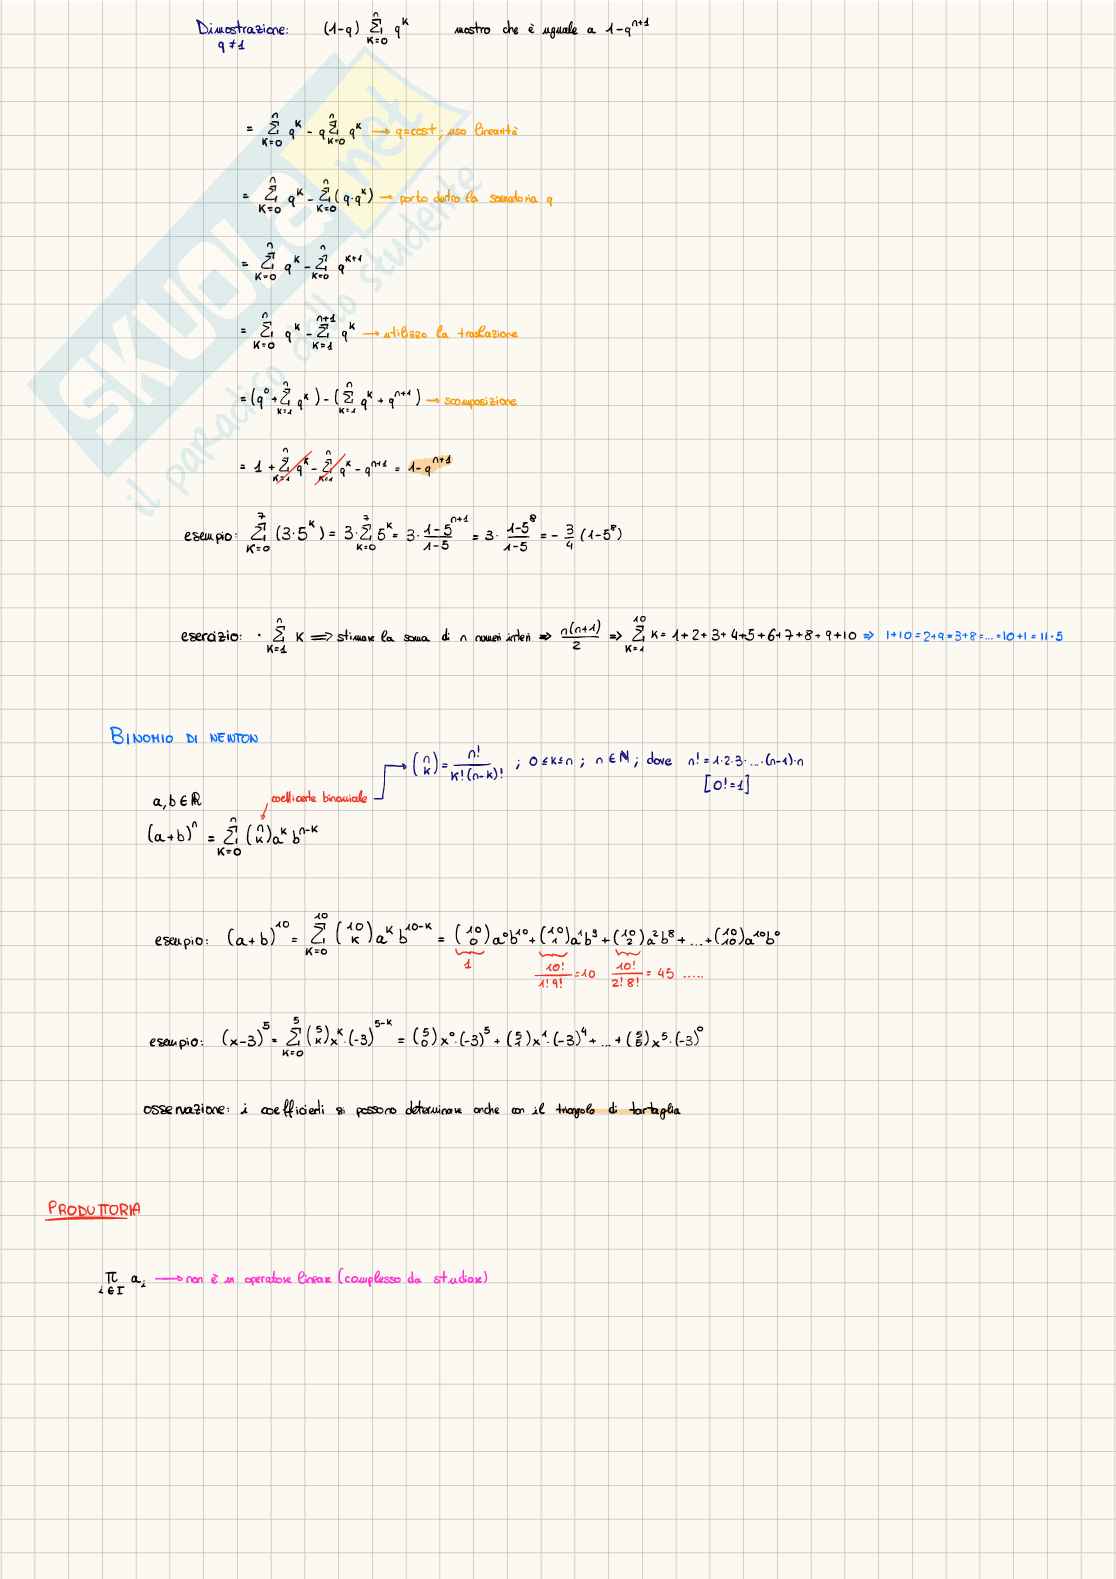 Dimostrazione: (1-q) Σ_{K=0}^{n} q^K mostro che è uguale a 1-q^{n+1}
q≠1
= Σ_{K=0}^{n} q^K - q Σ_{K=0}^{n} q^K → q=cost; uso linearità
= Σ_{K=0}^{n} q^K - Σ_{K=0}^{n} (q·q^K) → porto dentro la somatoria q
= Σ_{K=0}^{n} q^K - Σ_{K=0}^{n} q^{K+1}
= Σ_{K=0}^{n} q^K - Σ_{K=1}^{n+1} q^K → utilizzo la traslazione
= (q^0 + Σ_{K=1}^{n} q^K) - (Σ_{K=1}^{n} q^K + q^{n+1}) → scomposizione
= 1 + Σ_{K=1}^{n} q^K - Σ_{K=1}^{n} q^K - q^{n+1} = 1-q^{n+1}
esempio: Σ_{K=0}^{7} (3·5^K) = 3·Σ_{K=0}^{7} 5^K = 3· (1-5^{n+1})/(1-5) = 3· (1-5^8)/(1-5) = - 3/4 (1-5^8)
esercizio: · Σ_{K=1}^{n} K ⇒ stimare la soma di n numeri interi ⇒ n(n+1)/2 ⇒ Σ_{K=1}^{10} K = 1+2+3+4+5+6+7+8+9+10 ⇒ 1+10=2+9=3+8=...=10+1=11·5
BINOMIO DI NEWTON
(n K) = n!/(K!(n-K)!) ; 0≤K≤n ; n∈ℕ ; dove n! = 1·2·3·...·(n-1)·n
[0!=1]
a,b∈ℝ coefficiente binomiale
(a+b)^n = Σ_{K=0}^{n} (n K) a^K b^{n-K}
esempio: (a+b)^{10} = Σ_{K=0}^{10} (10 K) a^K b^{10-K} = (10 0) a^0 b^{10} + (10 1) a^1 b^9 + (10 2) a^2 b^8 + ... + (10 10) a^{10} b^0
1 10!/(1!9!) = 10 10!/(2!8!) = 45 .....
esempio: (x-3)^5 = Σ_{K=0}^{5} (5 K) x^K·(-3)^{5-K} = (5 0) x^0·(-3)^5 + (5 1) x^1·(-3)^4 + ... + (5 5) x^5·(-3)^0
osservazione: i coefficienti si possono determinare anche con il triangolo di tartaglia
PRODUTTORIA
Π_{i∈I} a_i → non è un operatore lineare (complesso da studiare)
SKUOLA.net
il paradiso dello studente